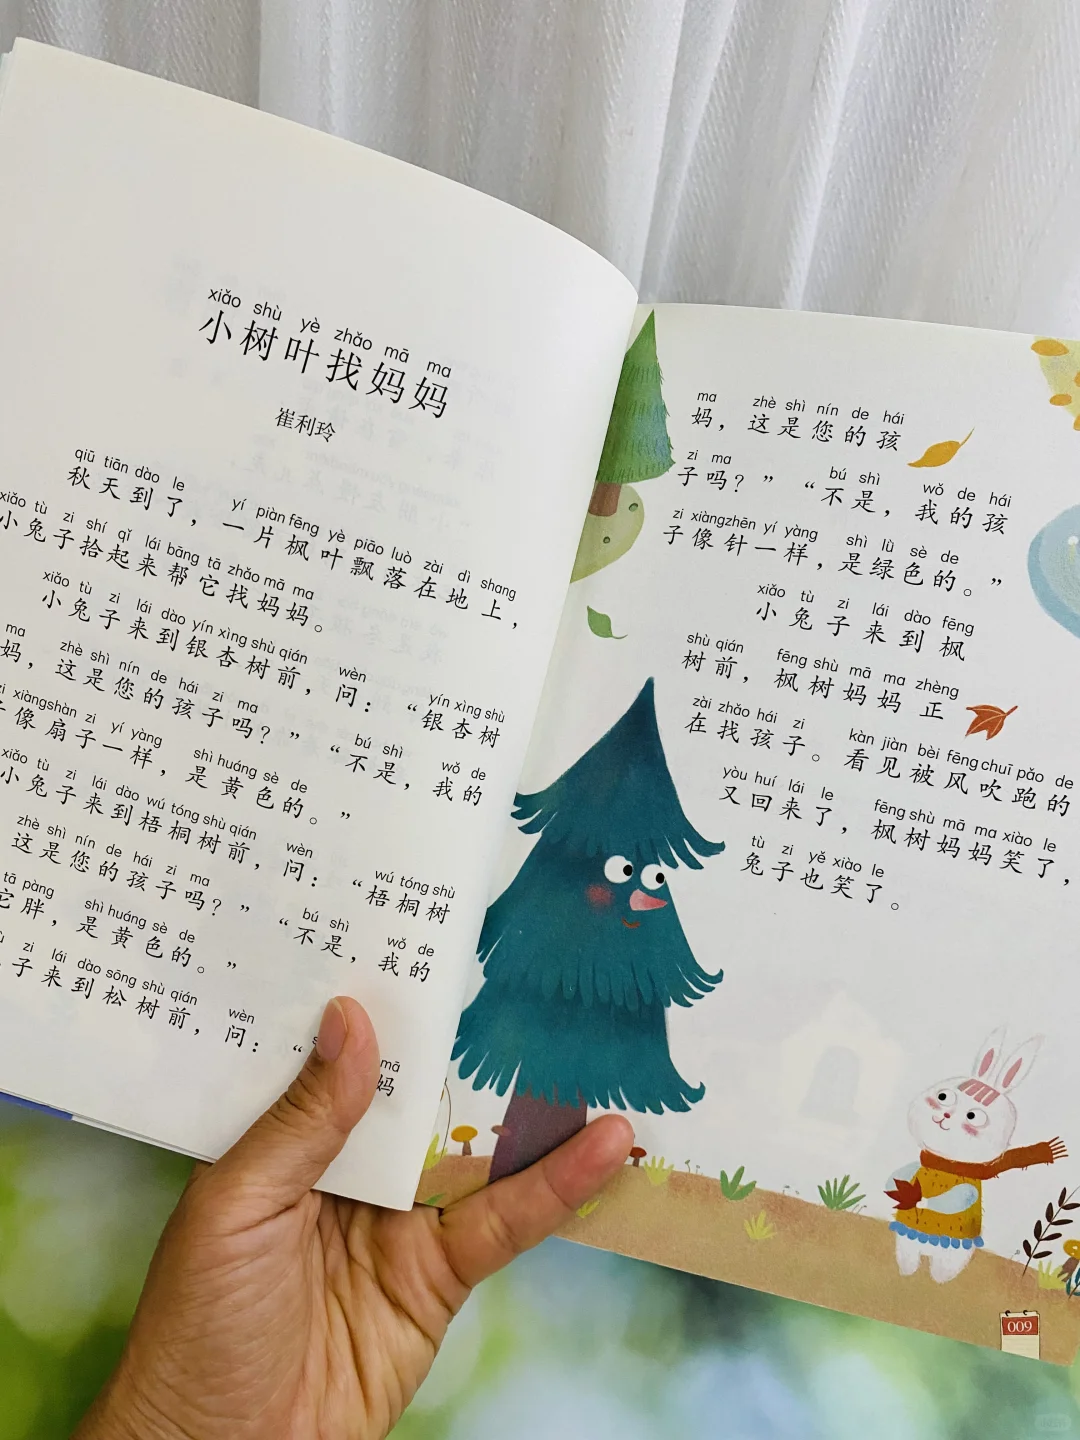 xiǎo shù yè zhǎo mā ma
小树叶找妈妈
崔利玲
qiū tiān dào le yí piàn fēng yè piāo luò zài dì shang
秋天到了，一片枫叶飘落在地上，
xiǎo tù zi shí qǐ lái bāng tā zhǎo mā ma
小兔子拾起来帮它找妈妈。
xiǎo tù zi lái dào yín xìng shù qián wèn yín xìng shù
小兔子来到银杏树前，问：“银杏树
ma zhè shì nín de hái zi ma bú shì wǒ de
妈，这是您的孩子吗？”“不是，我的
zi xiàng shàn zi yí yàng shì huáng sè de
子像扇子一样，是黄色的。”
xiǎo tù zi lái dào wú tóng shù qián wèn wú tóng shù
小兔子来到梧桐树前，问：“梧桐树
zhè shì nín de hái zi ma bú shì wǒ de
这是您的孩子吗？”“不是，我的
tā pàng shì huáng sè de
它胖，是黄色的。”
zi lái dào sōng shù qián wèn mā
子来到松树前，问：“妈
ma zhè shì nín de hái
妈，这是您的孩
zi ma bú shì wǒ de hái
子吗？”“不是，我的孩
zi xiàng zhēn yí yàng shì lǜ sè de
子像针一样，是绿色的。”
xiǎo tù zi lái dào fēng
小兔子来到枫
shù qián fēng shù mā ma zhèng
树前，枫树妈妈正
zài zhǎo hái zi kàn jiàn bèi fēng chuī pǎo de
在找孩子。看见被风吹跑的
yòu huí lái le fēng shù mā ma xiào le
又回来了，枫树妈妈笑了，
tù zi yě xiào le
兔子也笑了。
009